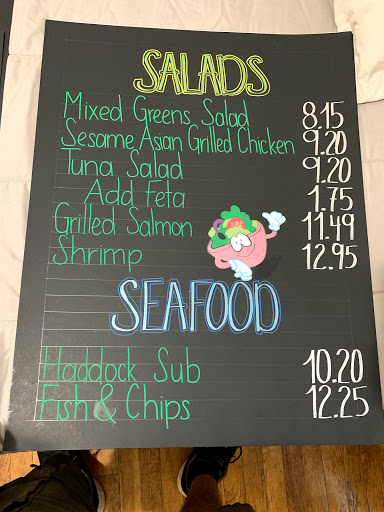 SALADS
Mixed Greens Salad 8.15
Sesame Asian Grilled Chicken 9.20
Tuna Salad 9.20
Add Feta 1.75
Grilled Salmon 11.49
Shrimp 12.95
SEAFOOD
Haddock Sub 10.20
Fish & Chips 12.25